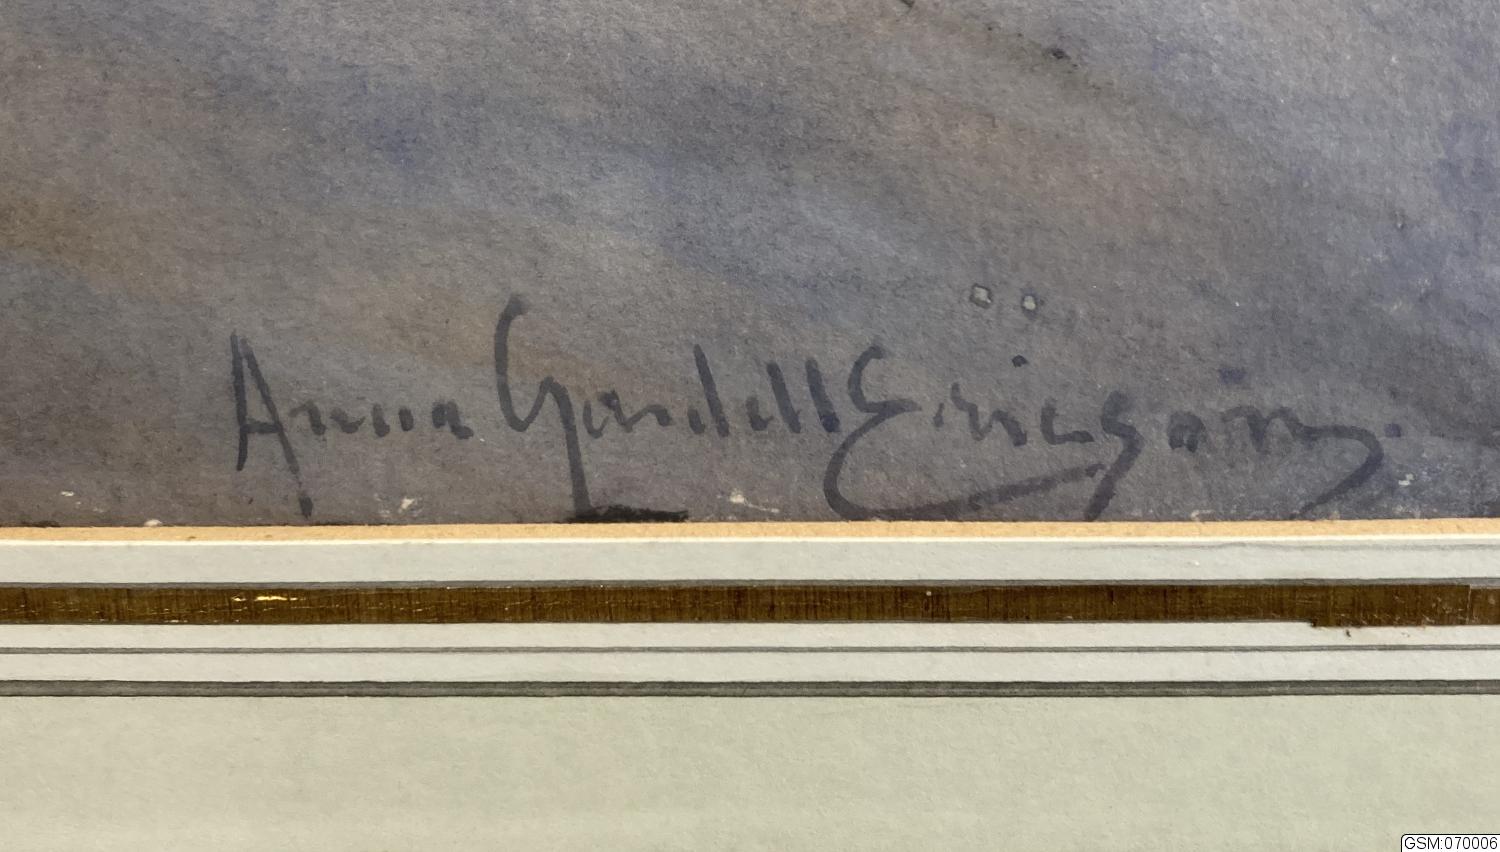 Anna Gardell Ericson.
GSM:070006